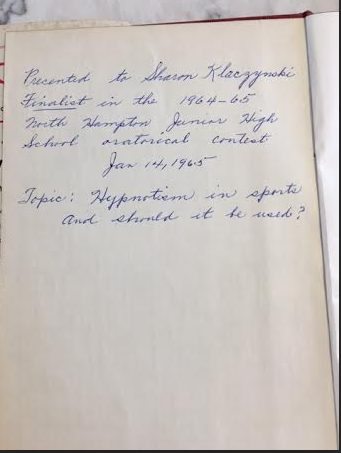 Presented to Sharon Klaczynski
Finalist in the 1964-65
North Hampton Junior High
School oratorical contest
Jan 14, 1965
Topic: Hypnotism in sports
and should it be used?